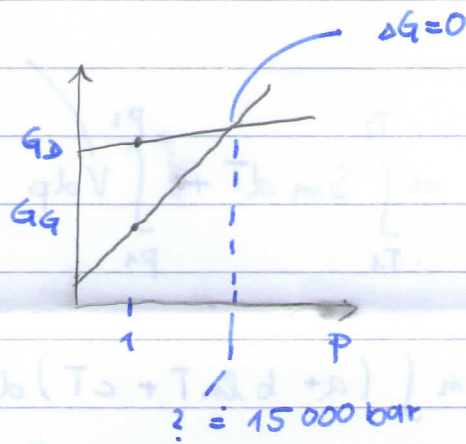 ΔG=0
G_D
G_G
1
p
? = 15 000 bar